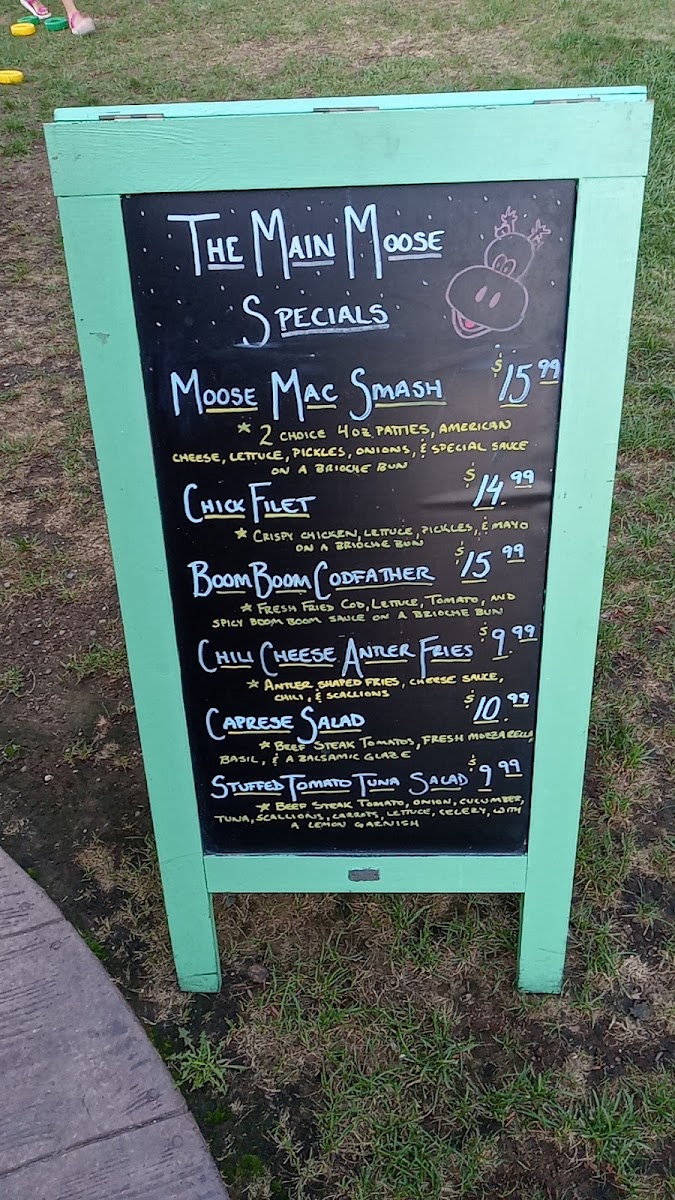 The Main Moose
Specials
Moose Mac Smash $15.99
* 2 choice 4oz patties, american
cheese, lettuce, pickles, onions, & special sauce
on a brioche bun
Chick Filet $14.99
* Crispy chicken, lettuce, pickles, & mayo
on a brioche bun
Boom Boom Codfather $15.99
* Fresh Fried Cod, Lettuce, Tomato, and
spicy boom boom sauce on a brioche bun
Chili Cheese Antler Fries $9.99
* Antler shaped fries, cheese sauce,
chili, & scallions
Caprese Salad $10.99
* Beef Steak Tomatos, fresh mozzarella,
basil, & a balsamic glaze
Stuffed Tomato Tuna Salad $9.99
* Beef Steak Tomato, onion, cucumber,
tuna, scallions, carrots, lettuce, celery, with
a lemon garnish